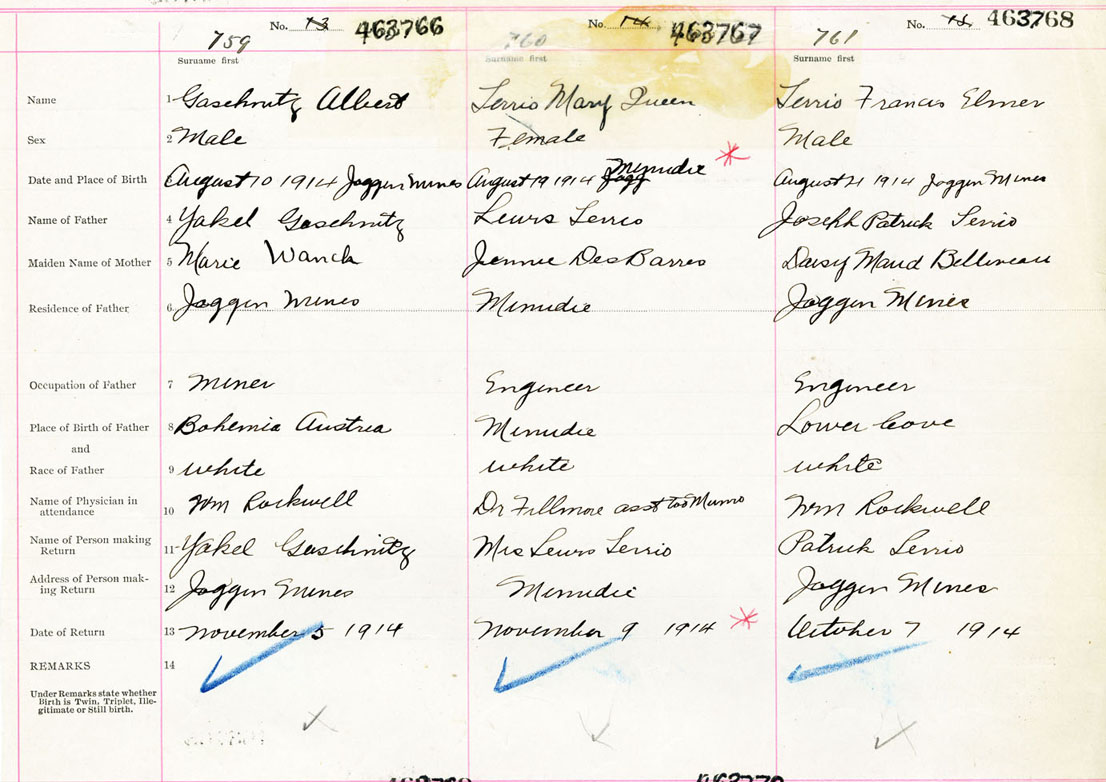 No. 13 463766 No. 14 463767 No. 15 463768
759 760 761
Surname first Surname first Surname first
Name 1 Gaschnitz Albert Serrio Mary Queen Serrio Francis Elmer
Sex 2 Male Female Male
Date and Place of Birth 3 August 10 1914 Joggin Mines August 19 1914 Jogg Minudie * August 21 1914 Joggin Mines
Name of Father 4 Yakel Gaschnitz Lewis Serrio Joseph Patrick Serrio
Maiden Name of Mother 5 Marie Wanek Jennie DesBarres Daisy Maud Belliveau
Residence of Father 6 Joggin Mines Minudie Joggin Mines
Occupation of Father 7 Miner Engineer Engineer
Place of Birth of Father 8 Bohemia Austria Minudie Lower Cove
and
Race of Father 9 white white white
Name of Physician in
attendance 10 Wm Rockwell Dr Fillmore asst Munro Wm Rockwell
Name of Person making
Return 11 Yakel Gaschnitz Mrs Lewis Serrio Patrick Serrio
Address of Person mak-
ing Return 12 Joggin Mines Minudie Joggin Mines
Date of Return 13 November 5 1914 November 9 1914 * October 7 1914
REMARKS 14
Under Remarks state whether
Birth is Twin, Triplet, Ille-
gitimate or Still birth.